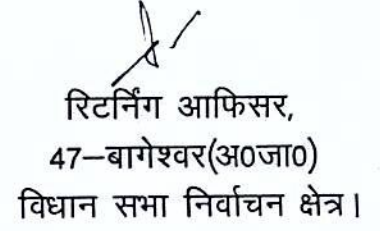 रिटर्निंग आफिसर,
47–बागेश्वर(अ0जा0)
विधान सभा निर्वाचन क्षेत्र।